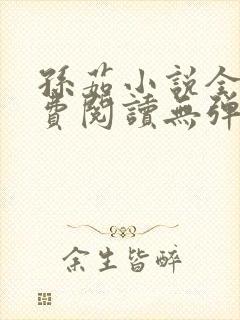 孫茹小説全
費閱讀無彈
余生皆醉